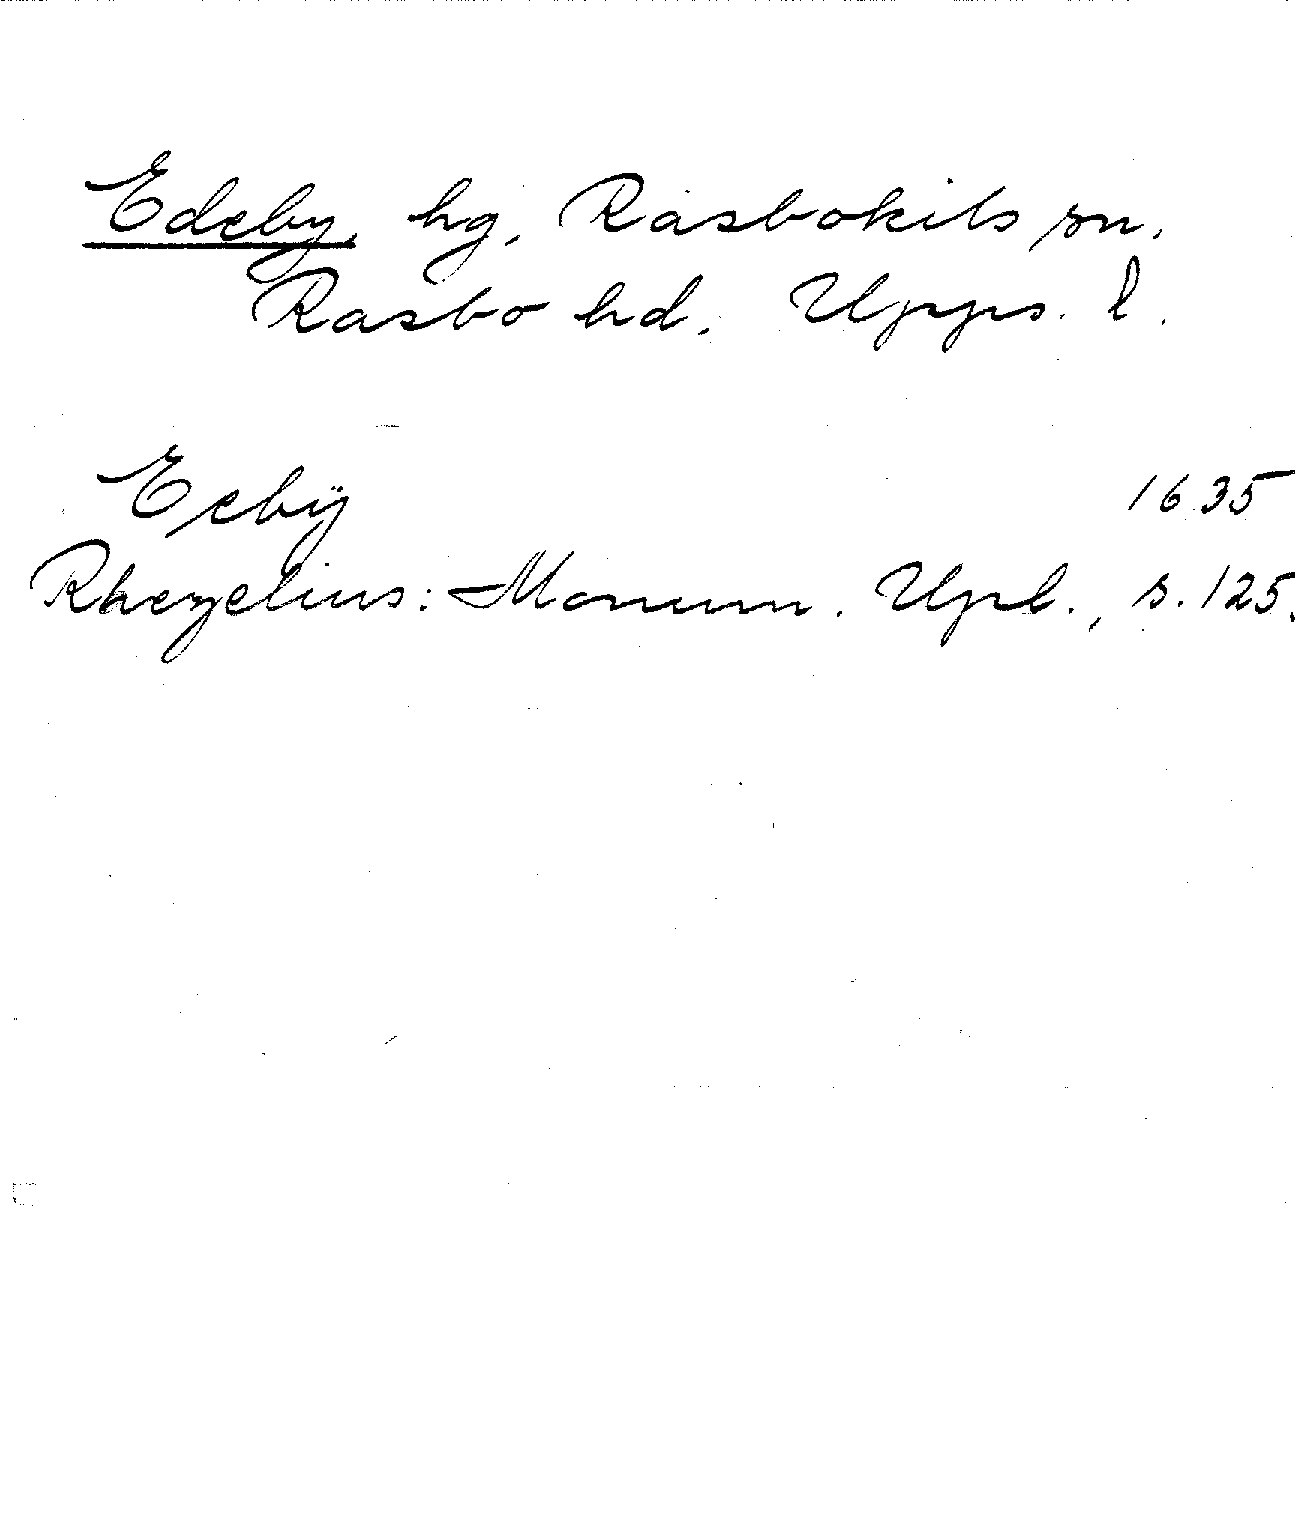 Edeby, hg, Rasbokils sn.
Rasbo hd. Upps. l.
Eebÿ 1635
Rhezelius: Monum. Upl., s. 125.